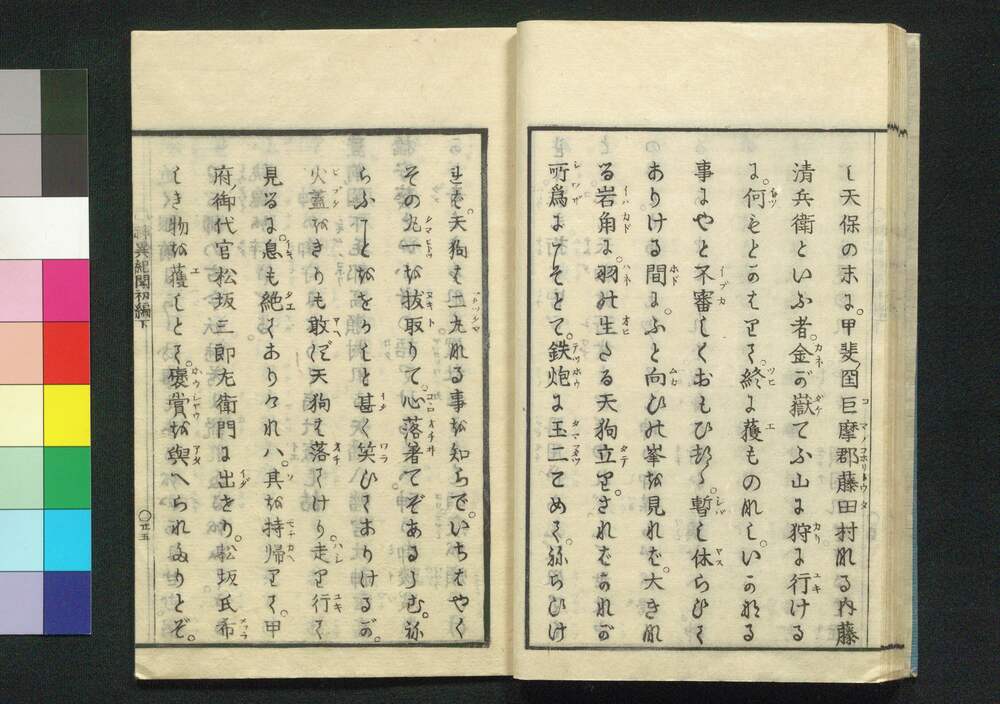 天保の末に。甲斐國巨摩郡藤田村なる内藤
清兵衛といふ者。金が嶽てふ山に狩に行ける
に。何もとのはずて。終に獲ものなし。いかなる
事にやと不審しくおもひ都〻。暫し休らひて
ありける間に。ふと向ひの峯を見れば。大きな
る岩角に。羽の生たる天狗立り。されば
所為にこそとて。鉄炮に玉二こめて。ねらひけ
れば。天狗は二丸なる事を知らで。いちはやく
その丸一を抜取りて。心落着てぞあるらむ。ね
らふことを と甚く笑ひてありけるが。
火蓋をきりも敢ず天狗は落てけり。走り行て
見るに。息も絶てありければ。其を持帰りて。甲
府御代官松坂三郎左衛門に出せり。松坂氏希
しき物を獲しとて。褒賞を與へられたりとぞ。
異紀聞初編下
○五五